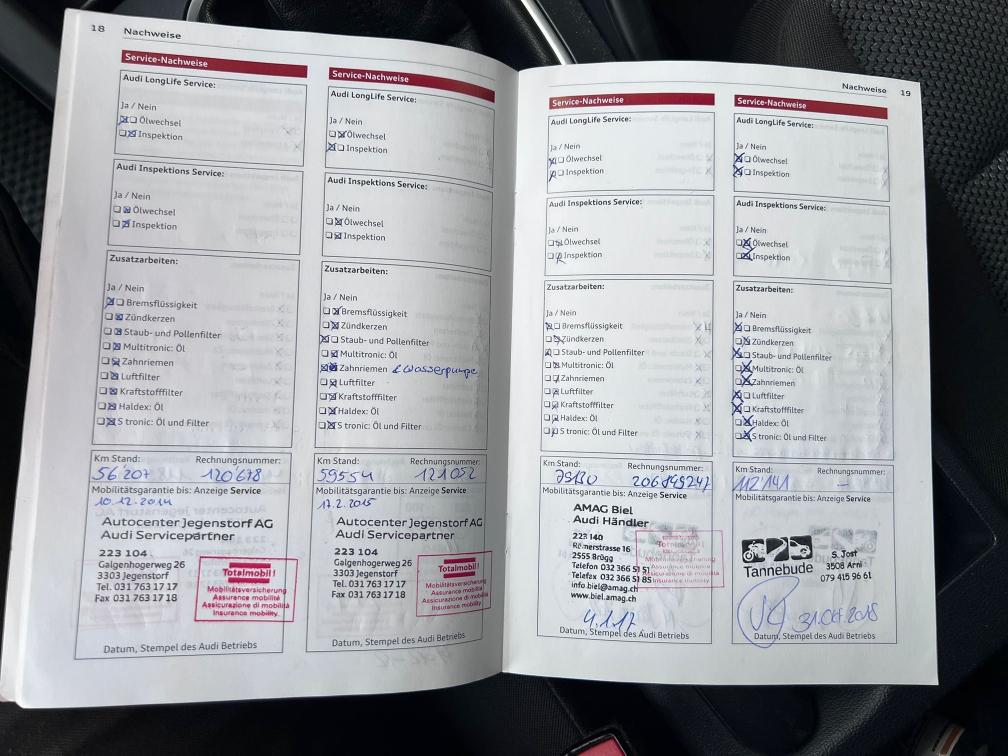 18 Nachweise
Service-Nachweise
Audi LongLife Service:
Ja / Nein
Ölwechsel
Inspektion
Audi Inspektions Service:
Ja / Nein
Ölwechsel
Inspektion
Zusatzarbeiten:
Ja / Nein
Bremsflüssigkeit
Zündkerzen
Staub- und Pollenfilter
Multitronic: Öl
Zahnriemen
Luftfilter
Kraftstofffilter
Haldex: Öl
S tronic: Öl und Filter
Km Stand: Rechnungsnummer:
56'207 120'678
Mobilitätsgarantie bis: Anzeige Service
10.12.2014
Autocenter Jegenstorf AG
Audi Servicepartner
223 104
Galgenhogerweg 26
3303 Jegenstorf
Tel. 031 763 17 17
Fax 031 763 17 18
Totalmobil!
Mobilitätsversicherung
Assurance mobilité
Assicurazione di mobilità
Insurance mobility
Datum, Stempel des Audi Betriebs
Service-Nachweise
Audi LongLife Service:
Ja / Nein
Ölwechsel
Inspektion
Audi Inspektions Service:
Ja / Nein
Ölwechsel
Inspektion
Zusatzarbeiten:
Ja / Nein
Bremsflüssigkeit
Zündkerzen
Staub- und Pollenfilter
Multitronic: Öl
Zahnriemen & Wasserpumpe
Luftfilter
Kraftstofffilter
Haldex: Öl
S tronic: Öl und Filter
Km Stand: Rechnungsnummer:
59554 121052
Mobilitätsgarantie bis: Anzeige Service
17.2.2015
Autocenter Jegenstorf AG
Audi Servicepartner
223 104
Galgenhogerweg 26
3303 Jegenstorf
Tel. 031 763 17 17
Fax 031 763 17 18
Totalmobil!
Mobilitätsversicherung
Assurance mobilité
Assicurazione di mobilità
Insurance mobility
Datum, Stempel des Audi Betriebs
Nachweise 19
Service-Nachweise
Audi LongLife Service:
Ja / Nein
Ölwechsel
Inspektion
Audi Inspektions Service:
Ja / Nein
Ölwechsel
Inspektion
Zusatzarbeiten:
Ja / Nein
Bremsflüssigkeit
Zündkerzen
Staub- und Pollenfilter
Multitronic: Öl
Zahnriemen
Luftfilter
Kraftstofffilter
Haldex: Öl
S tronic: Öl und Filter
Km Stand: Rechnungsnummer:
Mobilitätsgarantie bis: Anzeige Service
AMAG Biel
Audi Händler
223 140
Römerstrasse 16
2555 Brügg
Telefon 032 366 51 51
Telefax 032 366 51 85
info.biel@amag.ch
www.biel.amag.ch
Totalmobil!
Mobilitätsversicherung
Assurance mobilité
Assicurazione di mobilità
Insurance mobility
4.1.17
Datum, Stempel des Audi Betriebs
Service-Nachweise
Audi LongLife Service:
Ja / Nein
Ölwechsel
Inspektion
Audi Inspektions Service:
Ja / Nein
Ölwechsel
Inspektion
Zusatzarbeiten:
Ja / Nein
Bremsflüssigkeit
Zündkerzen
Staub- und Pollenfilter
Multitronic: Öl
Zahnriemen
Luftfilter
Kraftstofffilter
Haldex: Öl
S tronic: Öl und Filter
Km Stand: Rechnungsnummer:
112'141 –
Mobilitätsgarantie bis: Anzeige Service
Tannebude
S. Jost
3508 Arni
079 415 96 61
31.Okt.2018
Datum, Stempel des Audi Betriebs